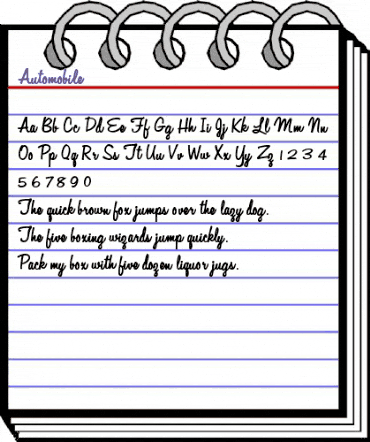 Automobile
Aa Bb Cc Dd Ee Ff Gg Hh Ii Jj Kk Ll Mm Nn
Oo Pp Qq Rr Ss Tt Uu Vv Ww Xx Yy Zz 1 2 3 4
5 6 7 8 9 0
The quick brown fox jumps over the lazy dog.
The five boxing wizards jump quickly.
Pack my box with five dozen liquor jugs.